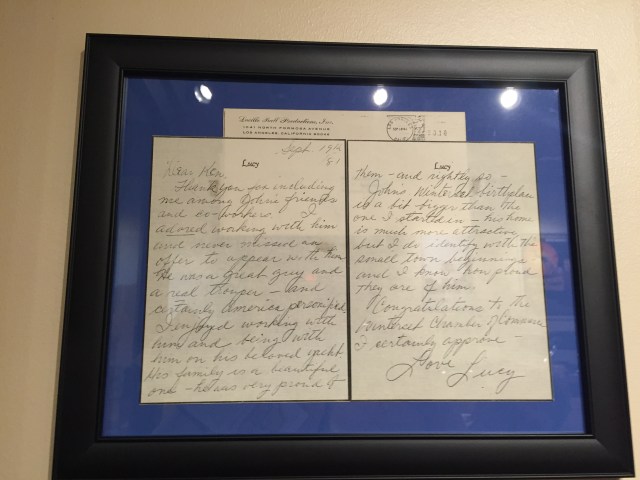 Lucille Ball Productions, Inc.
1041 NORTH FORMOSA AVENUE
LOS ANGELES, CALIFORNIA 90046
Sept. 19th
'81
Lucy
Dear Ken,
Thank you for including
me among John's friends
and co-workers. I
adored working with him
and never missed an
offer to appear with him.
He was a great guy and
a real trouper - and
certainly America personified.
I enjoyed working with
him and being with
him on his beloved yacht.
His family is a beautiful
one - he was very proud of
Lucy
them - and rightly so -
John's Winterset birthplace
is a bit bigger than the
one I started in - his home
is much more attractive,
but I do identify with the
small town beginnings
and I know how proud
they are of him.
Congratulations to the
Winterset Chamber of Commerce
I certainly approve -
Love Lucy